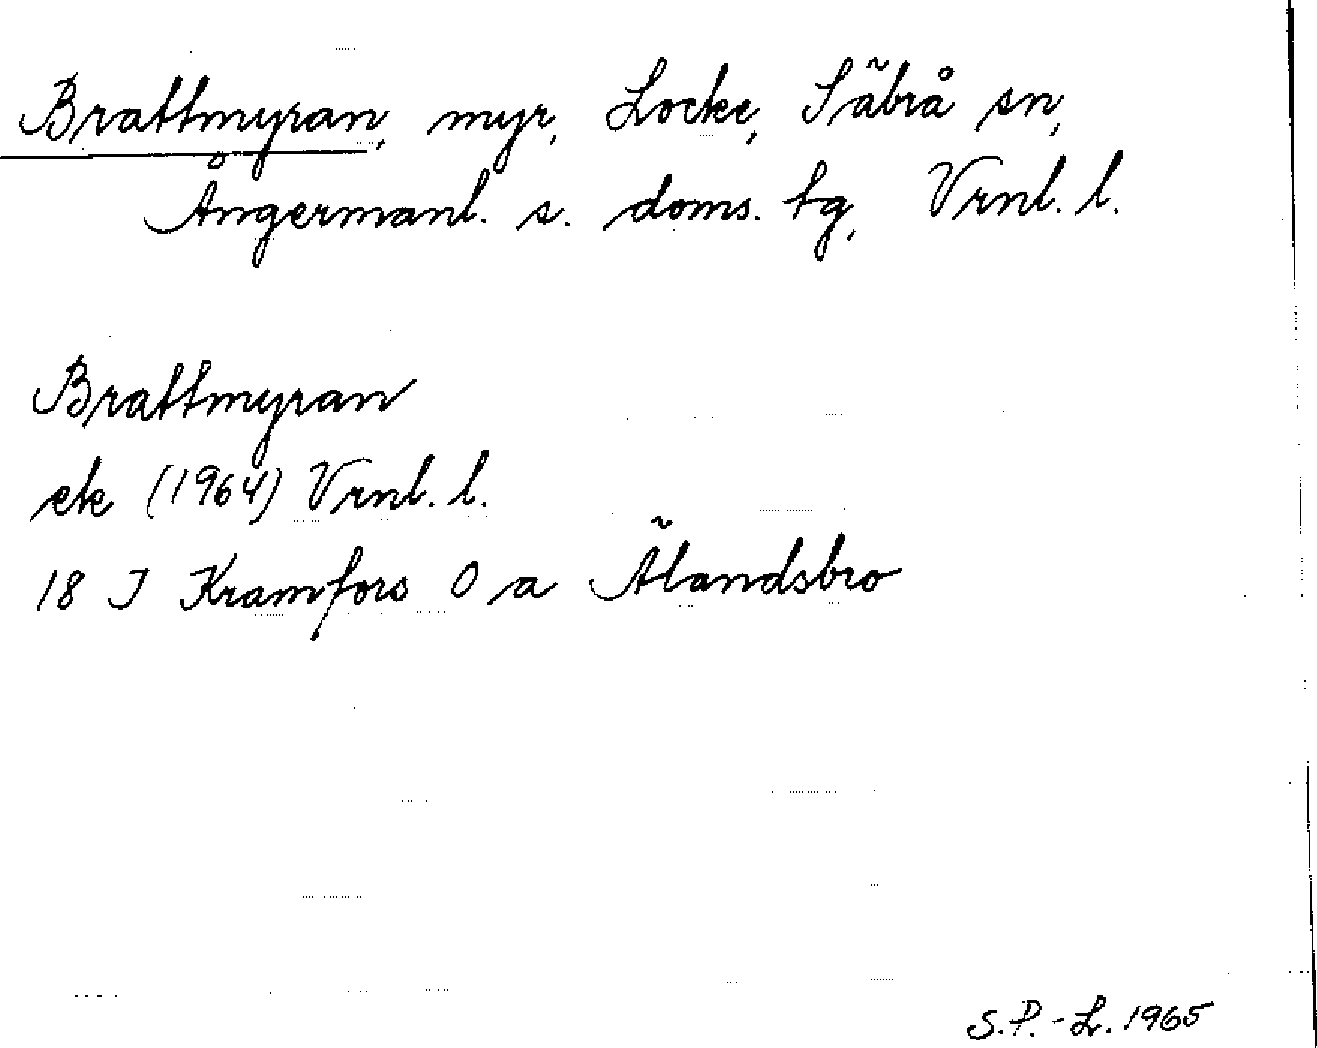 Brattmyran, myr, Locke, Säbrå sn,
Ångermanl. s. doms. tg, Vrnl. l.
Brattmyran
ek (1964) Vrnl. l.
18 J Kramfors O a Älandsbro
S.P.-L. 1965